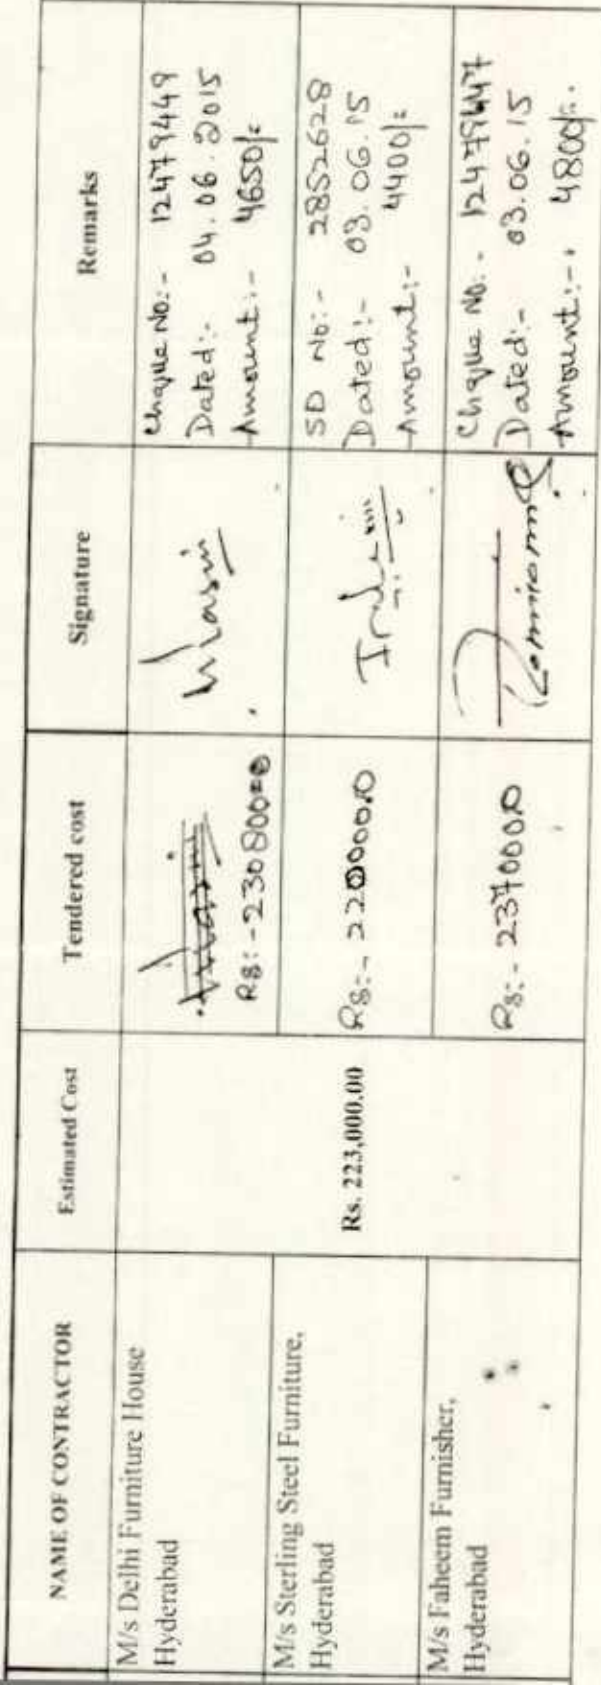 NAME OF CONTRACTOR Estimated Cost Tendered cost Signature Remarks
M/s Delhi Furniture House
Hyderabad
Rs:-230800=0
Wasim
Chaque No:- 12479449
Dated:- 04.06.2015
Amount:- 4650/=
M/s Sterling Steel Furniture,
Hyderabad
Rs. 223,000.00
Rs:- 220000.0
SD No:- 2852628
Dated:- 03.06.15
Amount:- 4400/=
M/s Faheem Furnisher,
Hyderabad
Rs:- 237000.0
Chaque No:- 12479447
Dated:- 03.06.15
Amount:- 4800/=